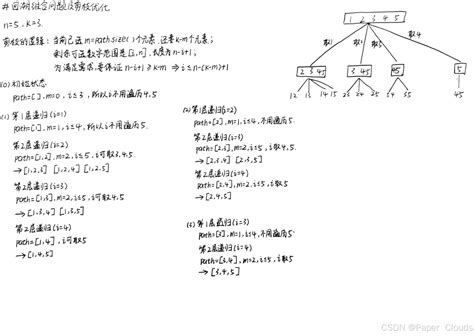 # 回溯组合问题及剪枝优化
n=5, k=3.
剪枝的逻辑: 当前已选 m=path.size() 个元素, 还差 k-m 个元素;
剩余可选数字范围是 [i,n], 长度为 n-i+1;
为满足需求, 要保证 n-i+1 ≥ k-m ⇒ i ≤ n-(k-m)+1
(0) 初始状态
path=[], m=0, i≤3, 所以 i 不用遍历 4,5
(1) 第1层递归 (i=1)
path=[1], m=1, i≤4, 所以 i 不用遍历 5.
第2层递归 (i=2)
path=[1,2], m=2, i≤5, i可取 3,4,5.
→ [1,2,3] [1,2,4] [1,2,5]
第2层递归 (i=3)
path=[1,3], m=2, i≤5, i可取 4,5
→ [1,3,4] [1,3,5]
第2层递归 (i=4)
path=[1,4], i可取 5
→ [1,4,5]
(2) 第1层递归 (i=2)
path=[2], m=1, i≤4, i不用遍历 5.
第2层递归 (i=3)
path=[2,3], m=2, i≤5, i取 4,5.
→ [2,3,4] [2,3,5]
第2层递归 (i=4)
path=[2,4], m=2, i≤5, i取 5
→ [2,4,5]
(3) 第1层递归 (i=3)
path=[3], m=1, i≤4, i不用遍历 5
第2层递归 (i=4)
path=[3,4], m=2, i≤5, i取5
→ [3,4,5]
1 2 3 4 5
取1 取4
2 3 4 5 3 4 5 4 5 5
12 13 14 15 23 24 25 34 35 45
CSDN @Paper_Clouds